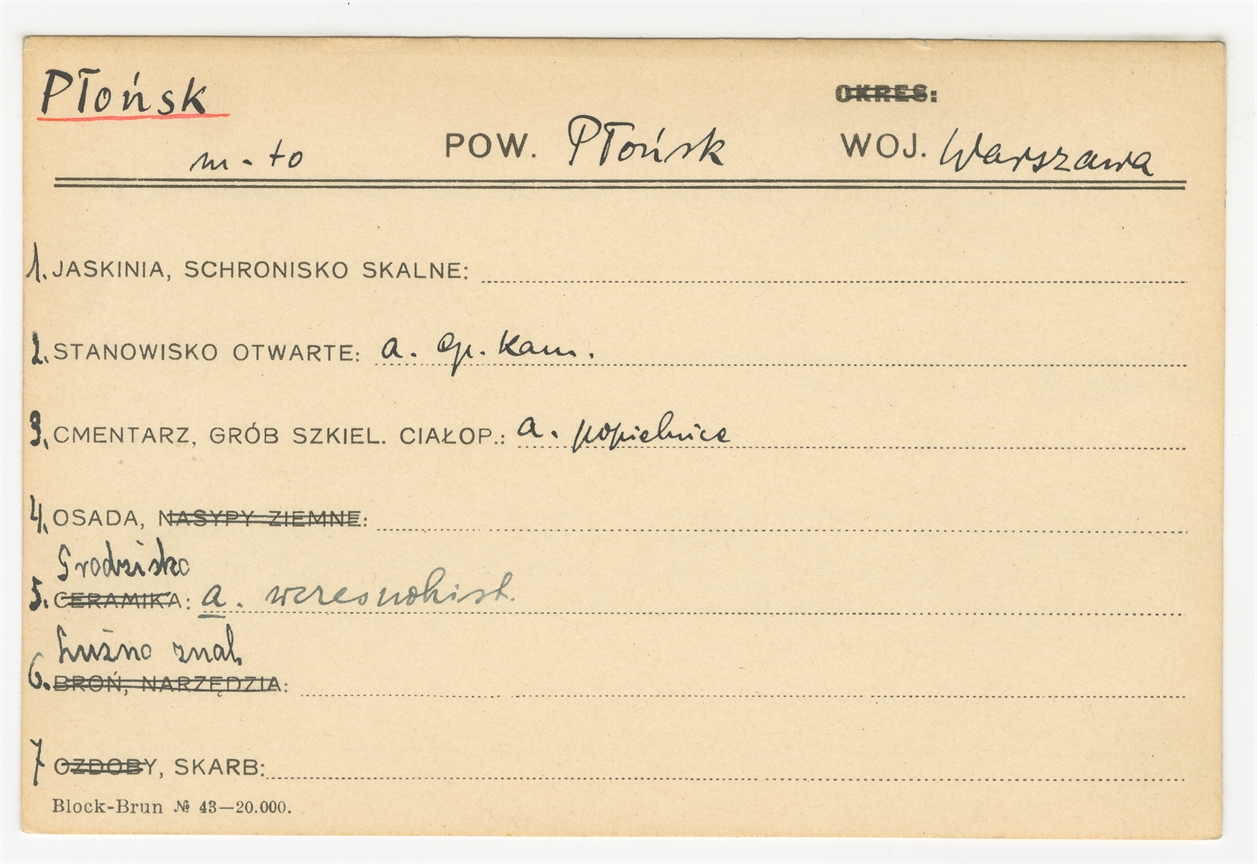 Płońsk
OKRES:
m-to POW. Płońsk WOJ. Warszawa
1. JASKINIA, SCHRONISKO SKALNE:
2. STANOWISKO OTWARTE: a. ep. kam.
3. CMENTARZ, GRÓB SZKIEL. CIAŁOP.: a. popielnice
4. OSADA, NASYPY ZIEMNE:
Grodzisko
5. CERAMIKA: a. wczesnohist.
Luźno znal.
6. BROŃ, NARZĘDZIA:
7 OZDOBY, SKARB:
Block-Brun № 43—20.000.